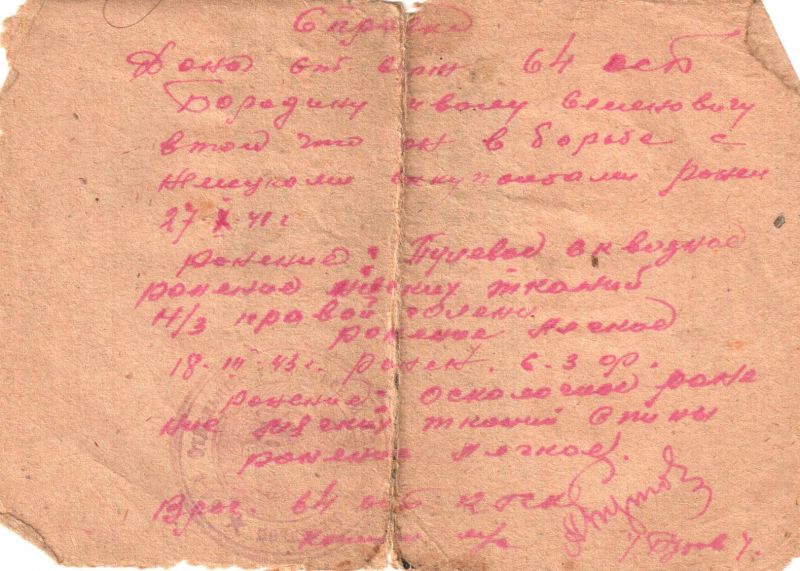 Справка
Дана серж. 64 осб
Бородину Семеновичу
в том что он в борьбе с
немецкими оккупантами ранен
27-X-41г
ранение: Пулевое сквозное
ранение мягких тканий
Н/3 правой голени.
ранение легкое
18-III-43г. ранен.
ранение: осколочное ране
ние мягких тканий спины
ранение легкое.
Врач. 64 осб
Капитан м/с